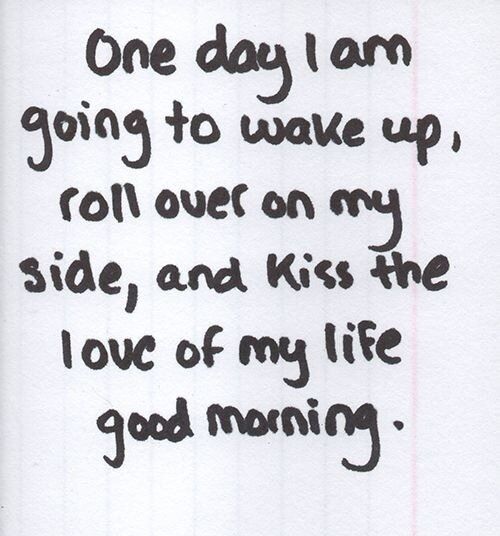 One day I am
going to wake up,
roll over on my
side, and Kiss the
love of my life
good morning.